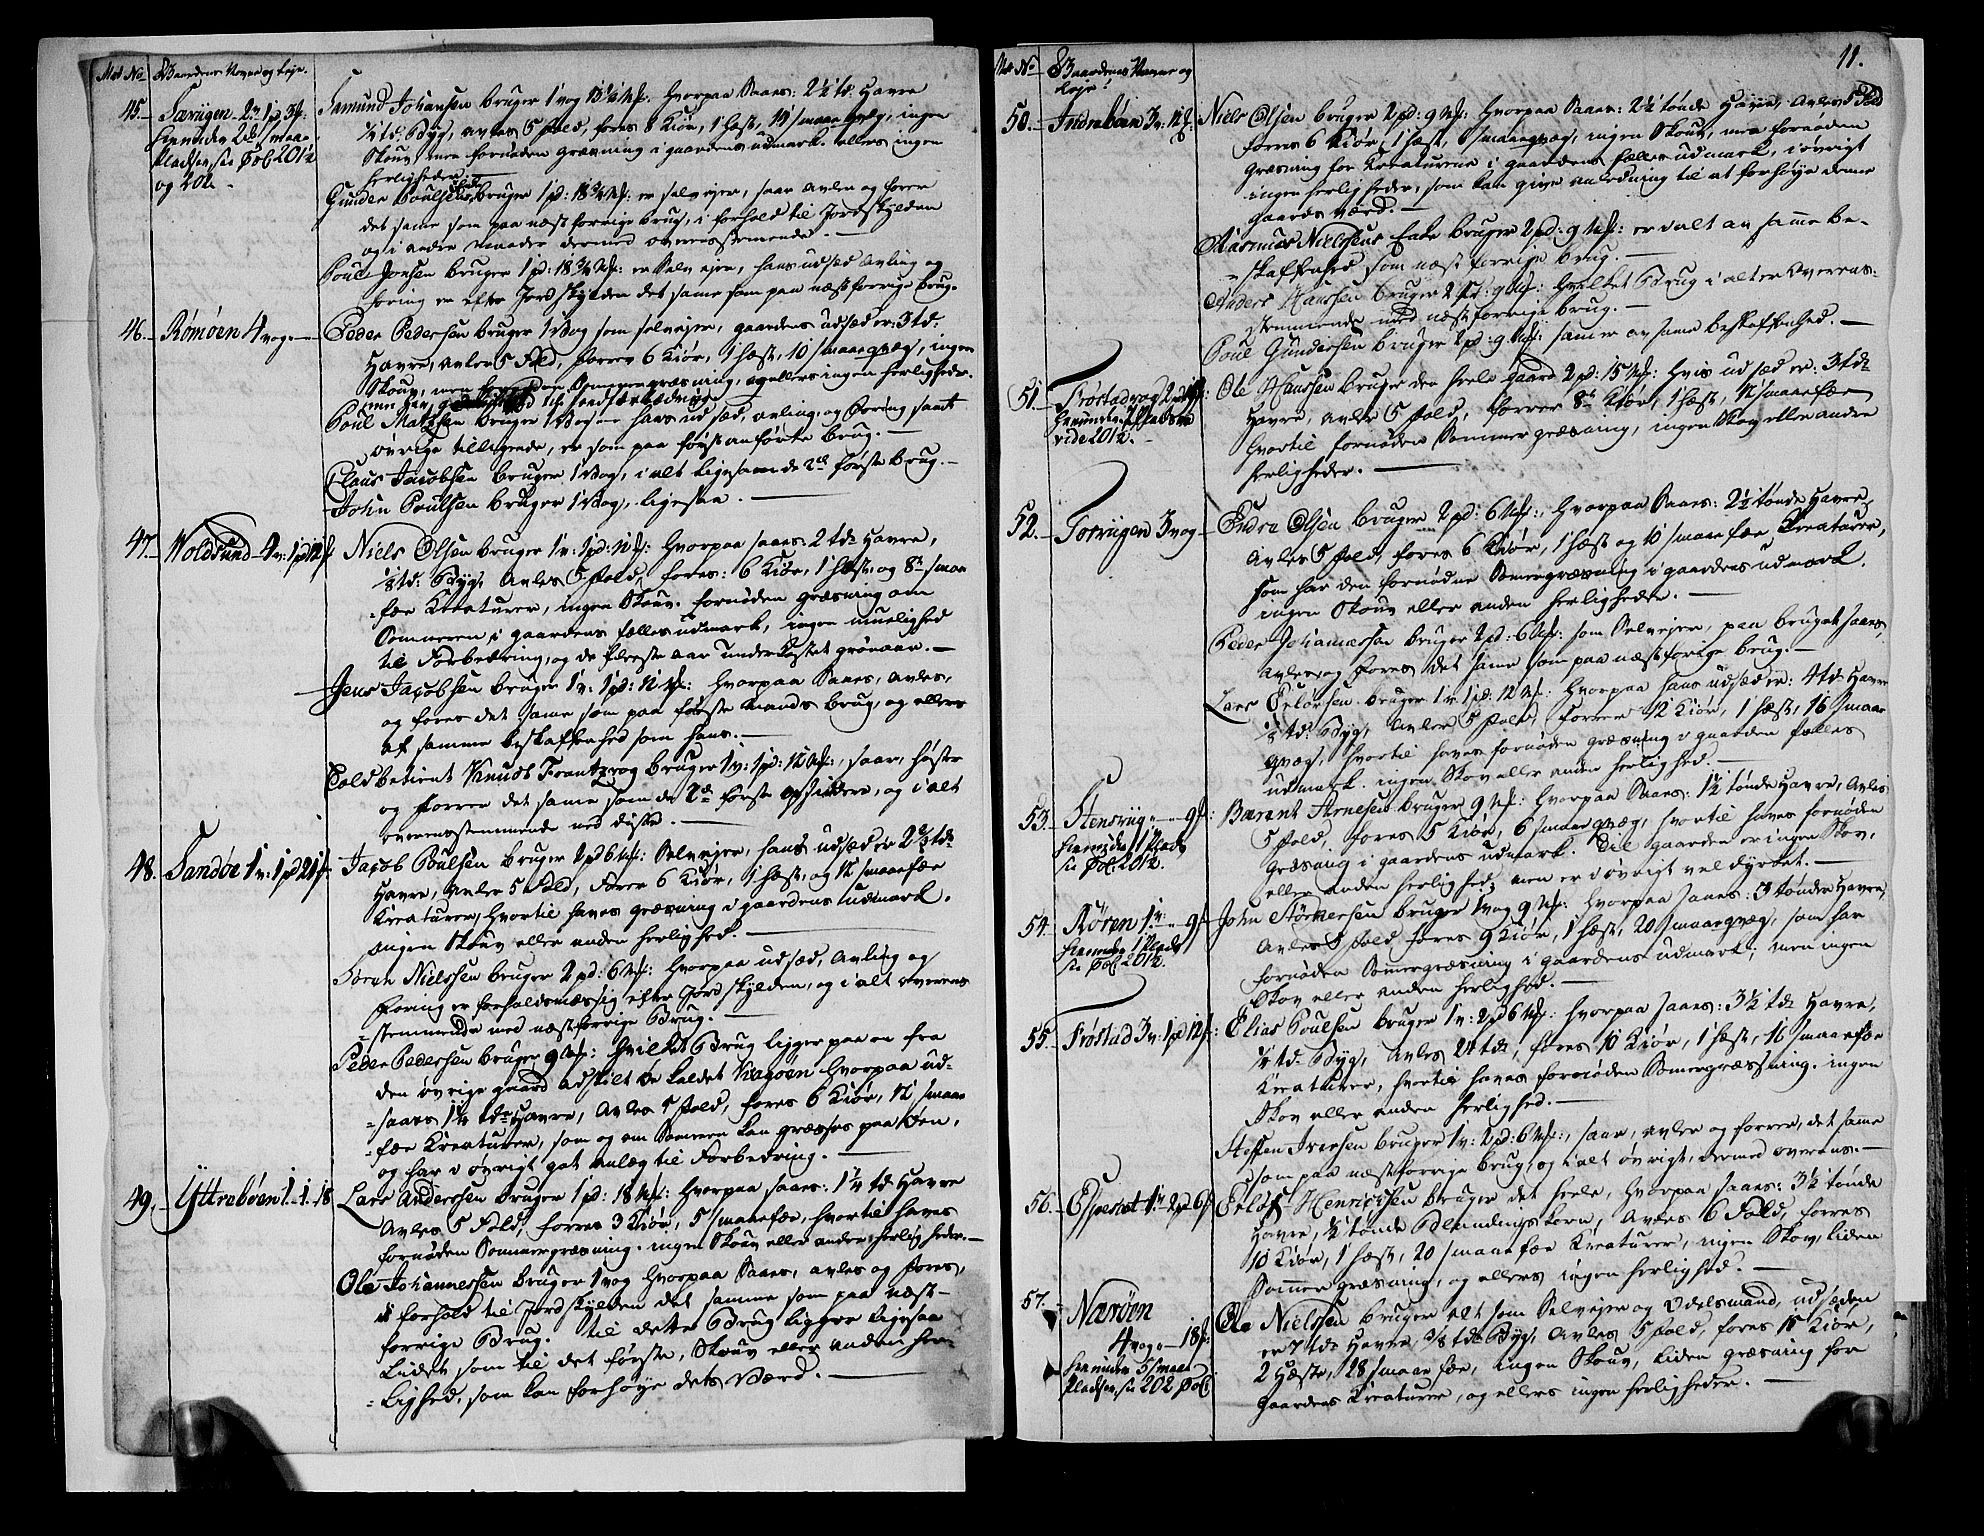 Mat No Gaardens Navne og Leje.
45. Særvigen 2 v 1 pd 3 f:
herunder 2de smaa-
Pladser, see Fol 201½
og 202.
Samund Johansen bruger 1 vog 13½ mk: hvorpaa Saaes: 2½ td: Havre
¼ td: Byg, avles 5 fold, fores 8 Kiør, 1 Hæst, 14 smaaqvæg, ingen
Skouv men fornøden græsning i gaardens udmark. ellers ingen
herligheder. —
Gunder Poulsen bruger 1 pd: 18¾ mk: er selvejer, saar avler og forer
det same som paa næstforrige brug, i forhold til Jordskylden
og i andre maader dermed overensstemende. —
Poul Jonsen bruger 1 pd: 18¾ mk: er selvejer, hans udsæd avling og
foring er efter Jordskylden det same som paa næstforrige brug.
46. Rømøen 4 vog. —
Peder Pedersen bruger 1 Vog som selvejer, gaardens udsæd er: 3 td:
Havre, avler 5 Fold, forer 6 Kiør, 1 hæst, 10 smaaqvæg, ingen
Skouv, men Sommergræsning, og ellers ingen herligheder
Poul Matzsen bruger 1 Vog — hans udsæd, avling, og foring samt
øvrige tillagede, er som paa først anførte brug. —
Claus Jacobsen bruger 1 Vog, i alt lignsamde 2de første brug. —
John Poulsen bruger 1 Vog, ligesaa. —
47. Woldsund 4 v: 1 pd 12 f
Niels Olsen bruger 1 v: 1 pd: 12 mk: hvorpaa saaes: 2 tdr Havre,
⅛ td: Byg, avles 5 fold, fores: 6 Kiør, 1 Hæst og 8te smaa
fæe Kreaturer, ingen Skouv. fornøden græsning om
Sommeren i gaardens fælles udmark, ingen muelighed
til Forbedring, og de fleeste aar underkastet grønaar. —
Jens Jacobsen bruger 1 v: 1 pd: 12 mk: hvorpaa saaes, avles,
og fores det same som paa første Mands brug, og ellers
af samme beskaffenhed som hans. —
Toldbetient Knuds Frantzvog bruger 1 v: 1 pd: 12 mk:, saar, høster
og forrer det same som de 2de første opsiddere, og i alt
overensstemmende med disse. —
48. Sandøe 1 v: 1 pd 21 f.
Jacob Poulsen bruger 2 pd 6 mk: Selvejer, hans udsæd er 2½ td:
Havre, avler 5 Fold, forer 6 Kiør, 1 hæst, og 12 smaafæe
Kreaturer, hvortil haves græsning i gaardens udmark.
ingen Skouv eller anden herlighed. —
Søren Nielssen bruger 2 pd: 6 mk: hvorpaa udsæd, avling og
foring er forholdsmæssig efter Jordskylden, og i alt overens
stemmende med næstforrige Brug. —
Peder Pedersen bruger 9 mk: hvilket Brug ligger paa en fra
den øvrige gaard adskilt Øe kaldet Kragøen hvorpaa ud-
saaes 1¼ tdr Havre, avles 5 fold, fores 6 Kiør, 12 smaae
fæe Kreaturer, som og om Someren kan græsses paa Øen,
og har i øvrigt got anlæg til Forbedring. —
49. Yttrebøen 1 - 1 - 18
Lars Anderssen bruger 1 pd: 18 mk: hvorpaa saaes: 1¼ td Havre
avles 5 Fold, fores 3 Kiør, 5 smaafæe, hvortil haves
fornøden Sommergræsning. ingen Skouv eller anden herligheder. —
Ole Johannessen bruger 1 vog hvorpaa Saaes, avles og fores,
i forhold til Jordskylden det samme som paa næst-
forrige Brug. til dette Brug ligger ligesaa
liden som til det første, Skouv eller anden her-
lighed, som kan forhøye dets Værd. —
11.
Mat No Gaardenes Navne og
Leje.
50. Indrebøen 3 v: 12 f:
Niels Olsen bruger 2 pd: 9 mk: hvorpaa Saaes: 2½ tønde Havre, avles 5 Fold
fores 6 Kiør, 1 hæst, 6 smaaqvæg, ingen Skouv, men fornøden
græsning for Kreaturerne i gaardens fælles udmark, i øvrigt
ingen herligheder, som kan give anledning til at forhøye denne
gaards værd. —
Rasmus Nielssens Enke bruger 2 pd: 9 mk: er i alt av same be-
skaffenhed som næst forrige brug. —
Anders Hanssen bruger 2 pd: 9 mk: hvilket Brug i alt er overens-
stemmende med næstforrige brug. —
Poul Gundersen bruger 2 pd: 9 mk: som er av same beskaffenhed. —
51. Frøstadvog 2 pd 15 f:
herunder 1 Pladser
vide 201½. —
Ole Hanssen bruger den heele gaard 2 pd: 15 mk: hvis udsæd er: 3 tdr
Havre, avler 5 fold, forrer 8te Kiør, 1 hæst, 12 smaafæe
hvortil fornøden Sommergræsning, ingen Skov eller andre
herligheder. —
52. Torvigen 3 vog —
Endre Olsen bruger 2 pd: 6 mk:, hvorpaa Saaes: 2½ tønde Havre,
avles 5 fold, fores 6 Kiør, 1 hæst og 10 smaafæe Kreaturer,
som har den fornødne Somergræsning i gaardens udmark.
ingen Skouv eller anden herligheder. —
Peder Johannessen bruger 2 pd: 6 mk: som Selvejer, paa bruget saaes,
avles, og fores det same som paa næstforige brug. —
Lars Peløesen bruger 1 v: 1 pd: 12 mk: hvorpaa hans udsæd er: 4 tdr Havre
⅛ td: Byg, avler 5 fold, forrer 12 Kiør, 1 hæst, 16 smaae
qvæg, hvortil haves fornøden græsning i gaarden fælles
udmark. ingen Skov eller anden herlighed. —
53. Stensvig „ — „ — 9 f:
herunder 1 Plads
see Fol 201½.
Barent Arnesen bruger 9 mk: hvorpaa Saaes: 1½ tønde Havre, avles
5 fold, fores 5 Kiør, 6 smaaqvæg, hvortil haves fornøden
græsning i gaardens udmark. Til gaarden er ingen Skov,
eller anden herlighed, men er i øvrigt vel dyrket. —
54. Røren 1 v: „ — 9 f
herunder 1 Plads
see Fol 201½.
John Størkersen bruger 1 vog 9 mk: hvorpaa saaes: 3 tønder Havre,
avles 5 fold, fores 9 Kiør, 1 hæst, 20 smaaqvæg, som har
fornøden Somergræsning i gaardens udmark, men ingen
Skov eller anden herlighed. —
55. Frøstad 3 v: 1 pd 12 f:
Elias Poulsen bruger 1 v: 2 pd 6 mk: hvorpaa saaes: 3½ tdr Havre,
¼ td: Byg, avles 24 tdr, fores 10 Kiør, 1 hæst, 16 smaafæe
Kreaturer, hvortil haves fornøden Somergræsning. ingen
Skov eller anden herlighed. —
Steffen Iversen bruger 1 v: 2 pd: 6 mk:, saar, avler og forrer, det same
som paa næstforrige brug, og i alt øvrigt, dermed overens. —
56. Espesæt 1 v: 2 pd 6 f
Peløs Henrichsen bruger det heele, hvorpaa saaes: 3½ tønde
Havre, ½ tønde Blandingskorn, avles 6 Fold, forres
10 Kiør, 1 hæst, 20 smaafæe Kreaturer, ingen Skov, liden
Sommergræsning, og ellers ingen herlighed. —
57. Nærøen
4 vog „ — 18 f:
herunder 5 smaae
Pladser, see 202 Fol
Ole Nielssen bruger alt som Selvejer og Odelsmand, udsæden
er 7 tdr Havre, ⅜ tdr Byg, avles 5 fold, fores 15 Kiør,
2 Hæste, 28 smaafæe, ingen Skouv, liden græsning for
gaardens Kreaturer, og ellers ingen herligheder. —